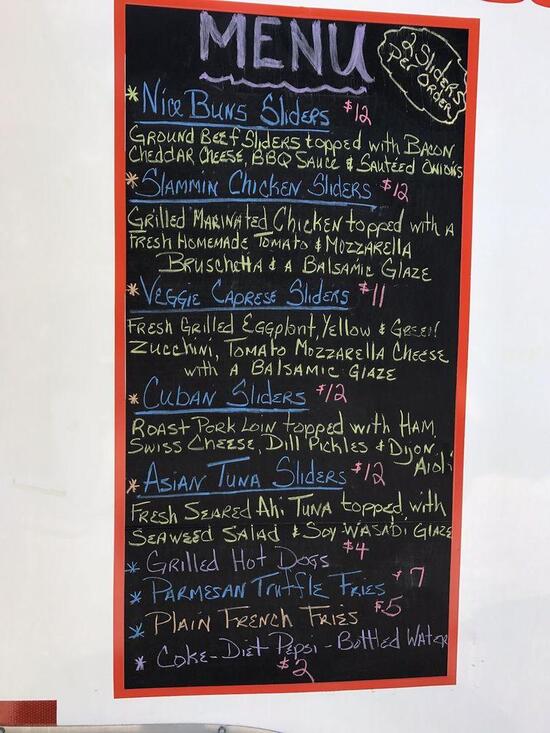 MENU
2 Sliders
Per Order
* Nice Buns Sliders $12
Ground Beef Sliders topped with Bacon
Cheddar Cheese, BBQ Sauce & Sautéed Onions
* Slammin Chicken Sliders $12
Grilled Marinated Chicken topped with a
Fresh Homemade Tomato & Mozzarella
Bruschetta & a Balsamic Glaze
* Veggie Caprese Sliders $11
Fresh Grilled Eggplant, Yellow & Green
Zucchini, Tomato Mozzarella Cheese
with a Balsamic Glaze
* Cuban Sliders $12
Roast Pork Loin topped with Ham
Swiss Cheese, Dill Pickles & Dijon
Aioli
* Asian Tuna Sliders $12
Fresh Seared Ahi Tuna topped with
Seaweed Salad & Soy-Wasabi Glaze
* Grilled Hot Dogs $4
* Parmesan Truffle Fries $7
* Plain French Fries $5
* Coke-Diet Pepsi-Bottled Water
$2